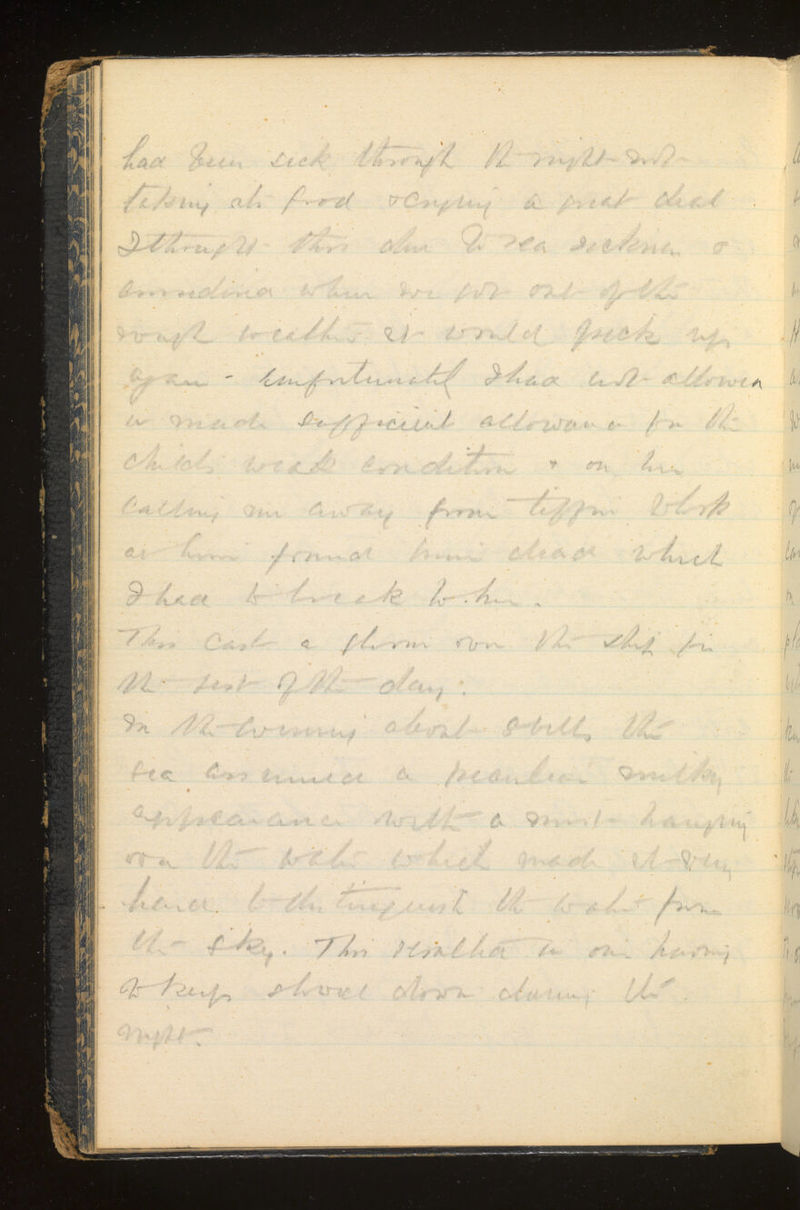 had been sick through the night not
taking its food & crying a great deal
I thought this due to sea sickness &
considered when we got out of the
rough weather it would pick up
again - unfortunately I had not allowed
or made sufficient allowance for the
childs weak condition & on her
calling me away from tiffin to look
at him found him dead which
I had to break to her.
This cast a gloom over the ship for
the rest of the day.
In the evening about 8 bells the
sea assumed a peculiar milky
appearance with a mist hanging
over the water which made it very
hard to distinguish the water from
the sky. This resulted in our having
to keep slowed down during the
night.